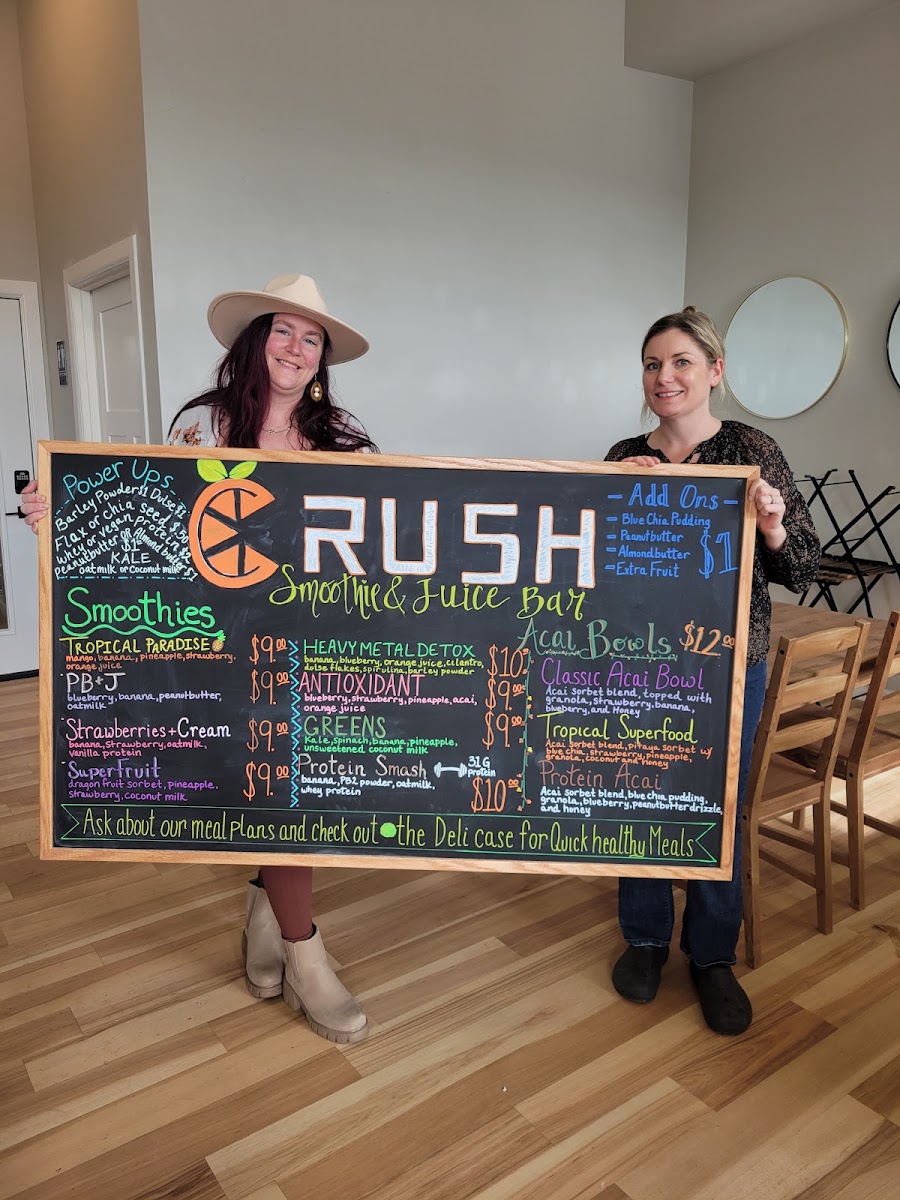 Power Ups
Barley Powder $1 Dulse $2
Flax or chia seed $.50
whey or vegan protein $2
peanutbutter or Almond butter $1
KALE $1
oatmilk or Coconut milk $1
CRUSH
Smoothie & Juice Bar
- Add Ons -
- Blue Chia Pudding
- Peanutbutter
- Almondbutter
- Extra Fruit
$1
Smoothies
TROPICAL PARADISE $9.00
mango, banana, pineapple, strawberry,
orange juice
PB+J $9.00
blueberry, banana, peanutbutter,
oatmilk
Strawberries + Cream $9.00
banana, strawberry, oatmilk,
vanilla protein
SuperFruit $9.00
dragon fruit sorbet, pineapple,
strawberry, coconut milk
HEAVY METAL DETOX $10.00
banana, blueberry, orange juice, cilantro,
dulse flakes, spirulina, barley powder
ANTIOXIDANT $9.00
blueberry, strawberry, pineapple, acai,
orange juice
GREENS $9.00
Kale, spinach, banana, pineapple,
unsweetened coconut milk
Protein Smash 31G protein $10.00
banana, PB2 powder, oatmilk,
whey protein
Acai Bowls $12.00
Classic Acai Bowl
Acai sorbet blend, topped with
granola, strawberry, banana,
blueberry, and Honey
Tropical Superfood
Acai sorbet blend, pitaya sorbet w/
blue chia, strawberry, pineapple,
granola, coconut and honey
Protein Acai
Acai sorbet blend, blue chia pudding,
granola, blueberry, peanutbutter drizzle,
and honey
Ask about our meal plans and check out the Deli case for Quick healthy Meals